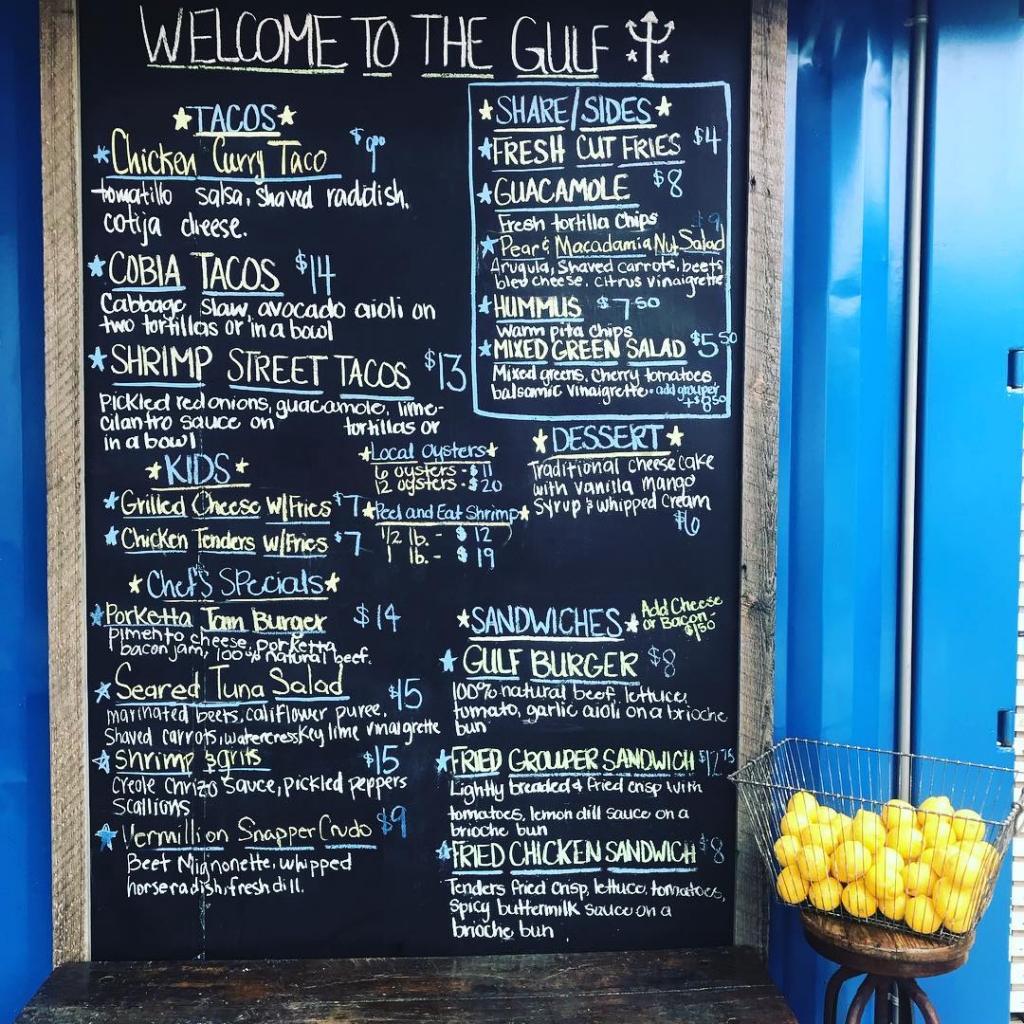 WELCOME TO THE GULF
TACOS
Chicken Curry Taco $9.00
tomatillo salsa, shaved raddish,
cotija cheese.
COBIA TACOS $14
Cabbage slaw, avocado aioli on
two tortillas or in a bowl
SHRIMP STREET TACOS $13
Pickled red onions, guacamole, lime-
cilantro sauce on tortillas or
in a bowl
KIDS
Grilled Cheese w/Fries $7
Chicken Tenders w/Fries $7
Local Oysters
6 oysters - $11
12 oysters - $20
Peel and Eat Shrimp
1/2 lb. - $12
1 lb. - $19
Chef's Specials
Porketta Jam Burger $14
pimento cheese, porketta
bacon jam, 100% natural beef.
Seared Tuna Salad $15
marinated beets, califlower puree,
Shaved carrots, watercress key lime vinaigrette
Shrimp & grits $15
Creole Chrizo Sauce, pickled peppers
Scallions
Vermillion Snapper Crudo $9
Beet Mignonette, whipped
horseradish, fresh dill.
SHARE/SIDES
FRESH CUT FRIES $4
GUACAMOLE $8
Fresh tortilla Chips
Pear & Macadamia Nut Salad $9
Arugula, Shaved carrots, beets
bleu cheese, citrus vinaigrette
HUMMUS $7.50
warm pita chips
MIXED GREEN SALAD $5.50
Mixed greens, cherry tomatoes
balsamic vinaigrette - add grouper
+$8.50
DESSERT
Traditional cheesecake
with vanilla mango
Syrup & whipped cream
$6
SANDWICHES Add Cheese
or Bacon-
$1.50
GULF BURGER $8
100% natural beef, lettuce,
tomato, garlic aioli on a brioche
bun
FRIED GROUPER SANDWICH $12.75
Lightly breaded & fried crisp with
tomatoes, lemon dill sauce on a
brioche bun
FRIED CHICKEN SANDWICH $8
Tenders fried crisp, lettuce, tomatoes,
spicy buttermilk sauce on a
brioche bun